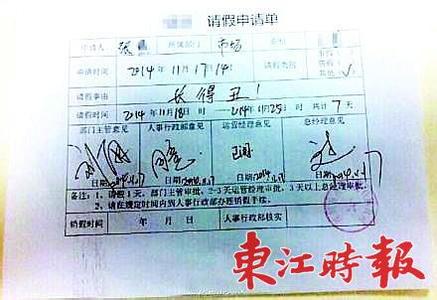 请假申请单
申请人 张 所属部门 市场
申请时间 2014年11月17日 请假类别 其他 ✓
请假事由 长得丑!
请假时间 2014年11月18日 时— 2014年11月25日 时 共计 7 天
部门主管意见 人事行政部意见 运营经理意见 总经理意见
日期 日期 日期 日期
备注:1、请假1天,部门主管审批,2-3天运营经理审批,3天以上总经理审批。
2、请在规定时间内到人事行政部办理销假手续。
销假时间 年 月 日 人事行政部核实
東江時報